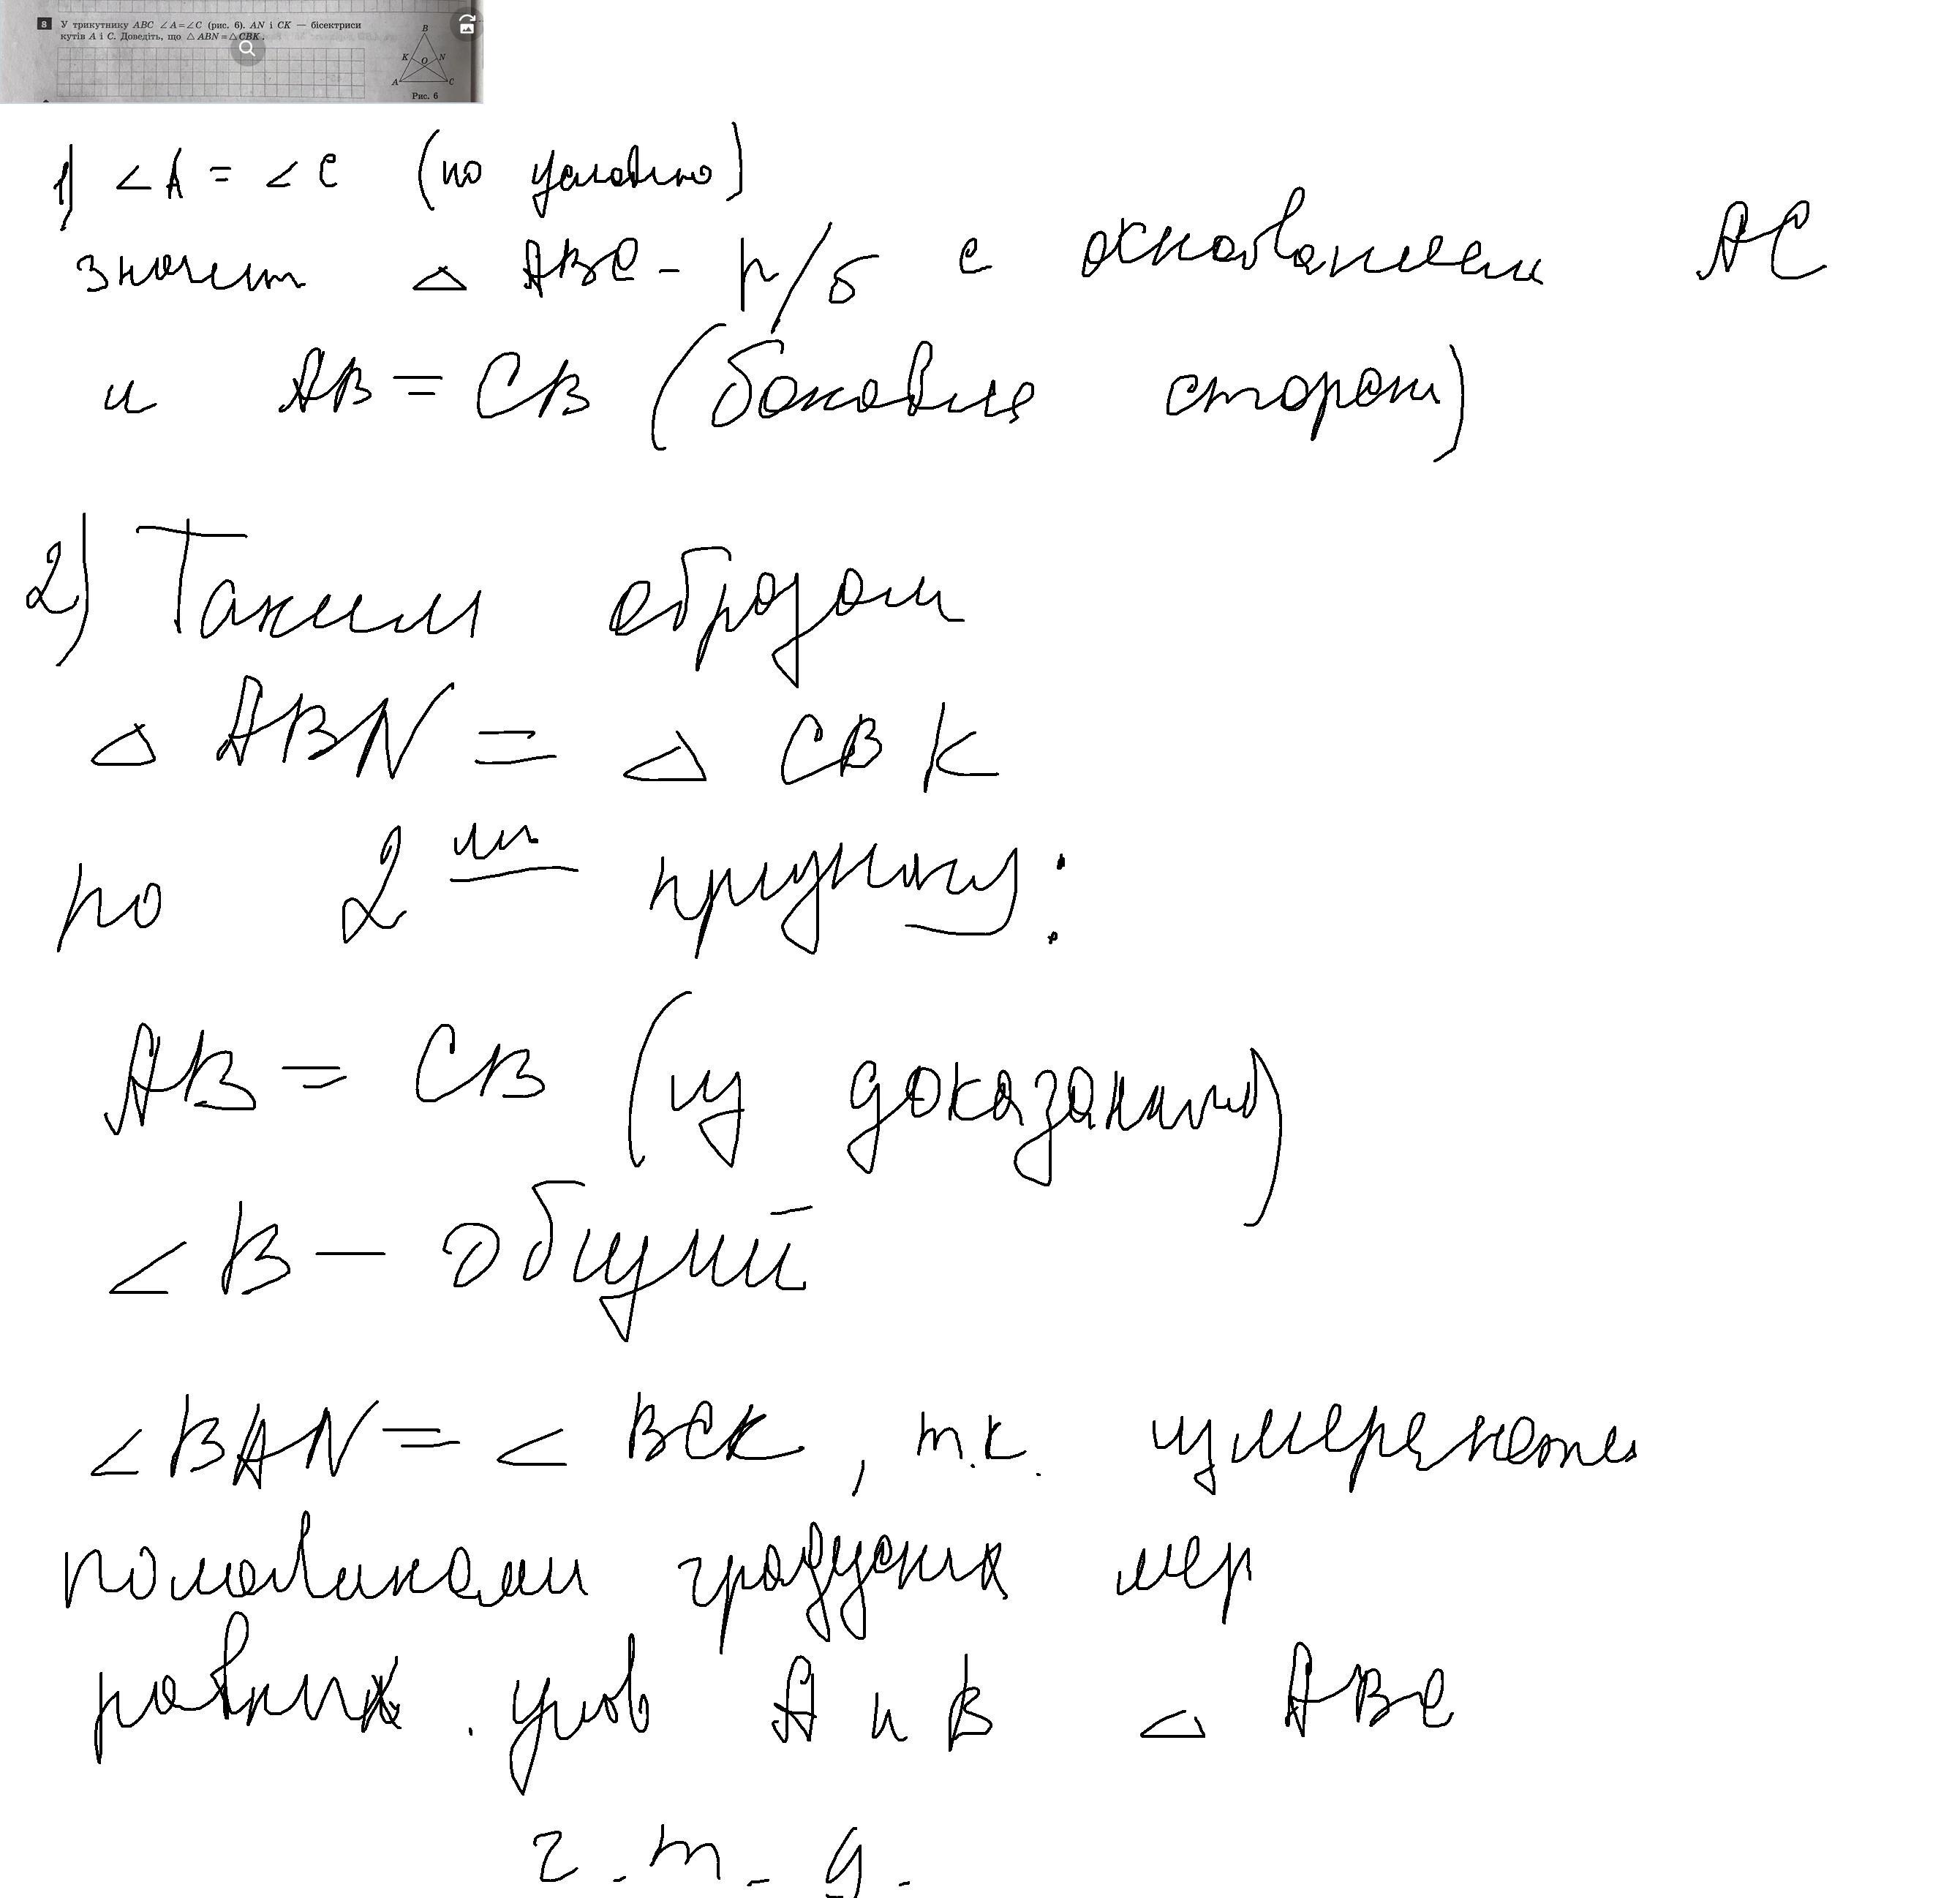 8 У трикутнику ABC ∠A=∠C (рис. 6). AN і CK — бісектриси
кутів A і C. Доведіть, що △ABN=△CBK.
B
K O N
A C
Рис. 6
1) ∠A = ∠C (по условию)
значит △ ABC - р/б с основанием AC
и AB = CB (боковые стороны)
2) Таким образом
△ ABN = △ CBK
по 2 му признаку:
AB = CB (из доказанного)
∠B — общий
∠BAN = ∠BCK, т.к. измеряются
половинами градусных мер
равных углов A и B △ ABC
ч.т.д.